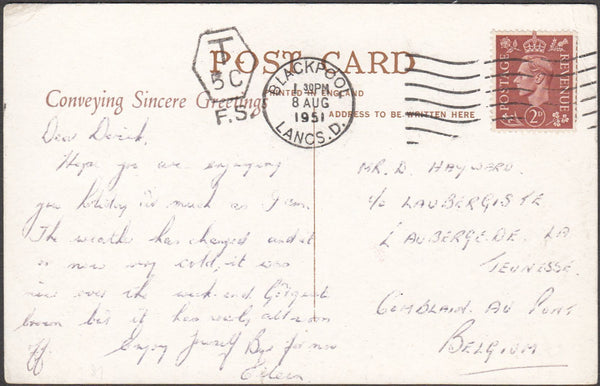 POST CARD
T
5C
F.S.
BLACKPOOL
1.30PM
8 AUG
1951
LANCS.D.
POSTAGE
REVENUE
2D
PRINTED IN ENGLAND
Conveying Sincere Greetings
ADDRESS TO BE WRITTEN HERE
Dear Derick,
Hope you are enjoying
you holiday as much as I am.
The weather has changed and it
is now very cold, it was
nice over the week-end. Got quite
brown but it has nearly all worn
off. Enjoy yourself Bye for now
Eileen
MR. D. HAYWARD.
c/o LAUBERGISTE
L'AUBERGE. DE. LA
JEUNESSE.
COMBLAIN. AU PONT
BELGIUM